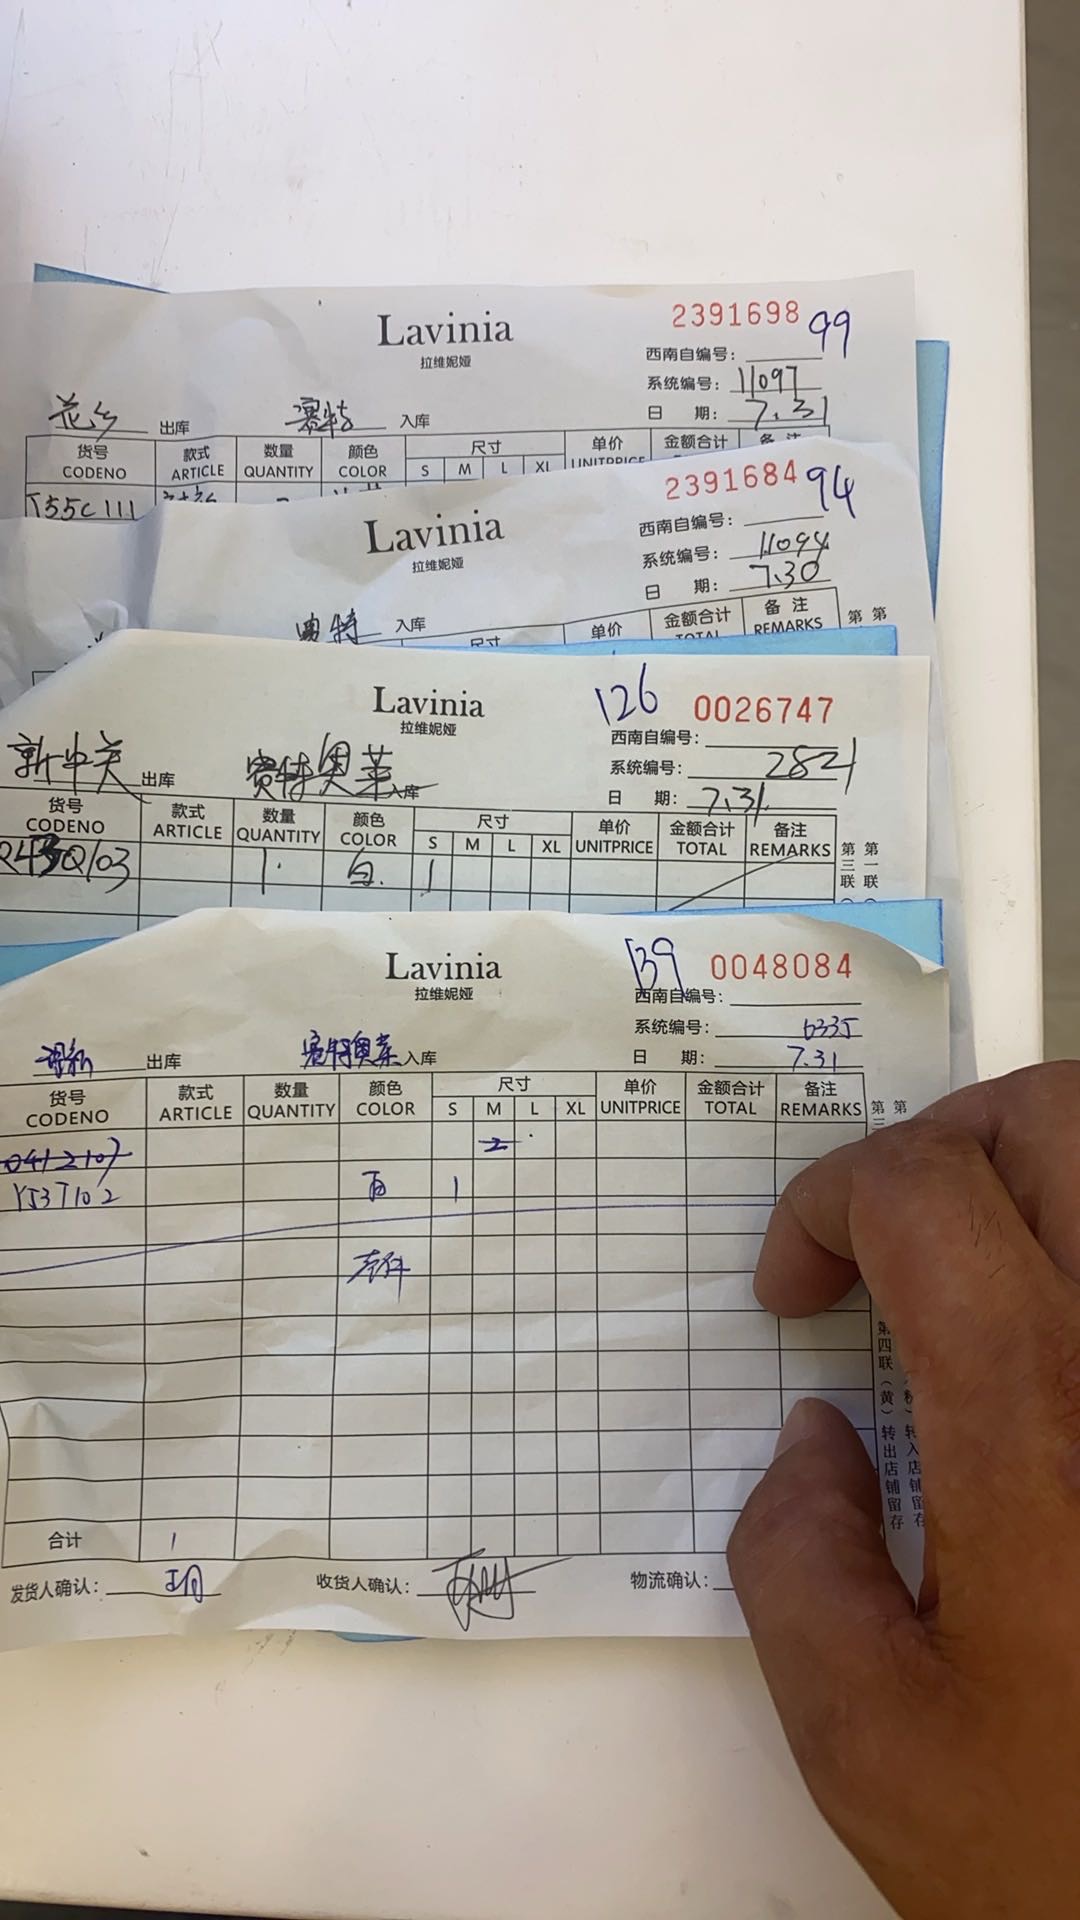 Lavinia
拉维妮娅
2391698 99
西南自编号:
系统编号: 11097
日 期: 7.31
花乡 出库 赛特 入库
货号 款式 数量 颜色 尺寸 单价 金额合计 备注
CODENO ARTICLE QUANTITY COLOR S M L XL UNITPRICE
J55C111
Lavinia
拉维妮娅
2391684 94
西南自编号:
系统编号: 11094
日 期: 7.30
赛特 入库
尺寸 单价 金额合计 备注
TOTAL REMARKS
第 第
Lavinia
拉维妮娅
126 0026747
西南自编号:
系统编号: 2821
日 期: 7.31
新中关 出库 赛特奥莱 入库
货号 款式 数量 颜色 尺寸 单价 金额合计 备注
CODENO ARTICLE QUANTITY COLOR S M L XL UNITPRICE TOTAL REMARKS
1 白 1
第三联
第一联
Lavinia
拉维妮娅
139 0048084
西南自编号:
系统编号: 6335
日 期: 7.31
出库 赛特奥莱 入库
货号 款式 数量 颜色 尺寸 单价 金额合计 备注
CODENO ARTICLE QUANTITY COLOR S M L XL UNITPRICE TOTAL REMARKS
0412107 2
Y53T102 白 1
合计 1
发货人确认: 收货人确认: 物流确认:
第三
第
第四联(黄)转出店铺留存
转入店铺留存